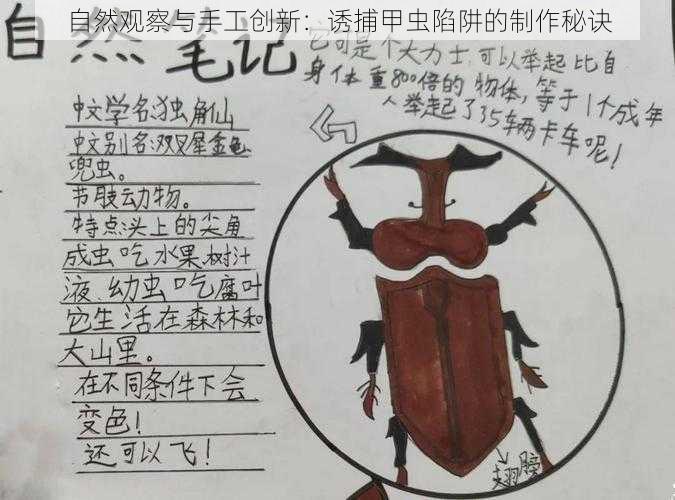 自然观察与手工创新：诱捕甲虫陷阱的制作秘诀
自然笔记
它可是个大力士,可以举起比自
身体重800倍的物体,等于1个成年
人举起了35辆卡车呢!
中文学名:独角仙
中文别名:双叉犀金龟
兜虫。
节肢动物。
特点头上的尖角
成虫吃水果.树汁
液、幼虫吃腐叶
它生活在森林和
大山里。
在不同条件下会
变色!
还可以飞!
翅膀